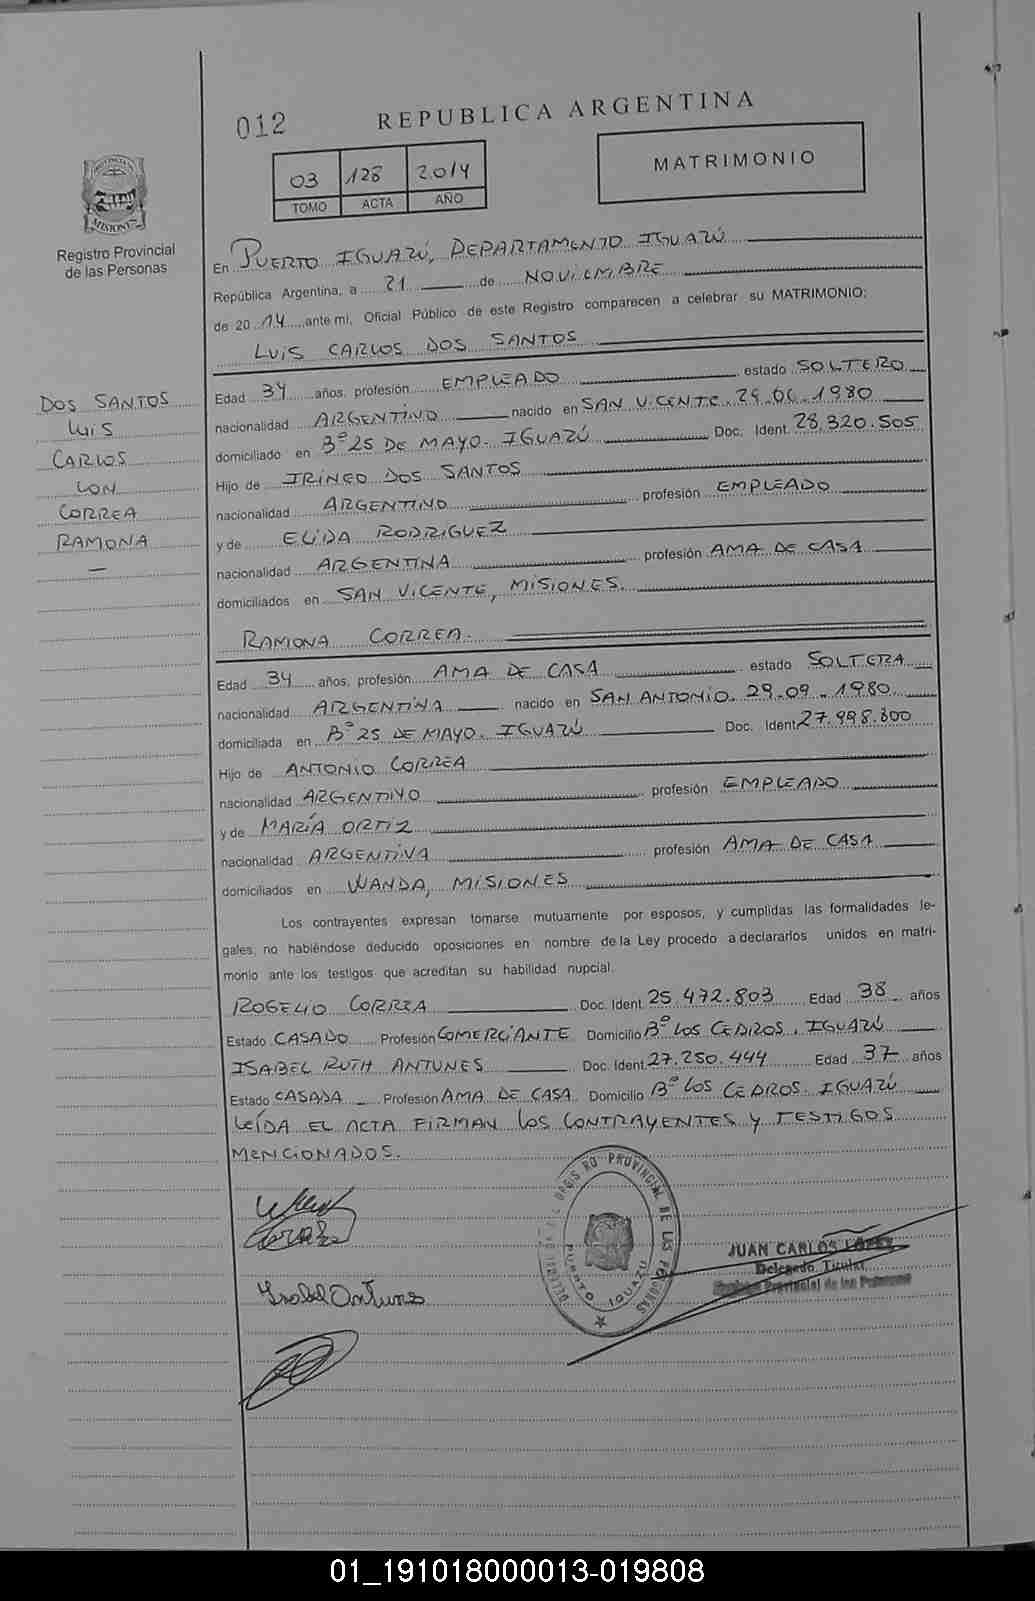 012
REPUBLICA ARGENTINA
03 128 2014
TOMO ACTA AÑO
MATRIMONIO
PROVINCIA
MISIONES
Registro Provincial
de las Personas
En PUERTO IGUAZÚ, DEPARTAMENTO IGUAZÚ
República Argentina, a 21 de NOVIEMBRE
de 20 14 ante mi, Oficial Público de este Registro comparecen a celebrar su MATRIMONIO:
LUIS CARLOS DOS SANTOS
DOS SANTOS
LUIS
CARLOS
CON
CORREA
RAMONA
Edad 34 años, profesión EMPLEADO estado SOLTERO
nacionalidad ARGENTINO nacido en SAN VICENTE, 29.06.1980
domiciliado en Bº 25 DE MAYO. IGUAZÚ Doc. Ident. 28.320.505
Hijo de IRINEO DOS SANTOS
nacionalidad ARGENTINO profesión EMPLEADO
y de ELIDA RODRIGUEZ
nacionalidad ARGENTINA profesión AMA DE CASA
domiciliados en SAN VICENTE, MISIONES.
RAMONA CORREA.
Edad 34 años, profesión AMA DE CASA estado SOLTERA
nacionalidad ARGENTINA nacido en SAN ANTONIO. 29.09.1980
domiciliada en Bº 25 DE MAYO. IGUAZÚ Doc. Ident. 27.998.300
Hijo de ANTONIO CORREA
nacionalidad ARGENTINO profesión EMPLEADO
y de MARÍA ORTIZ
nacionalidad ARGENTINA profesión AMA DE CASA
domiciliados en WANDA, MISIONES
Los contrayentes expresan tomarse mutuamente por esposos, y cumplidas las formalidades le-
gales, no habiéndose deducido oposiciones en nombre de la Ley procedo a declararlos unidos en matri-
monio ante los testigos que acreditan su habilidad nupcial.
ROGELIO CORREA Doc. Ident. 25.472.803 Edad 38 años
Estado CASADO Profesión COMERCIANTE Domicilio Bº LOS CEDROS. IGUAZÚ
ISABEL RUTH ANTUNES Doc. Ident. 27.250.444 Edad 37 años
Estado CASADA Profesión AMA DE CASA Domicilio Bº LOS CEDROS. IGUAZÚ
LEÍDA EL ACTA FIRMAN LOS CONTRAYENTES Y TESTIGOS
MENCIONADOS.
PROVINCIAL DE LAS PERSONAS
PUERTO IGUAZU
JUAN CARLOS LOPEZ
Delegado Titular
Registro Provincial de las Personas
Isabel Antunes
01_191018000013-019808